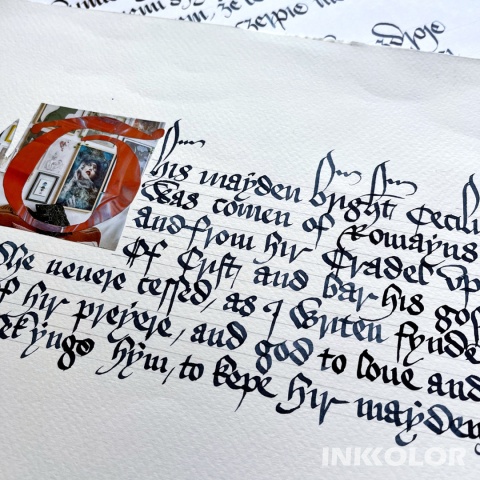 This mayden bright Cecili
Was comen of Romayns
and from hir Cradel up
Of Crist, and bar his gos
She neuere cessed, as I writen fynde
f hir preyere, and god to loue and
ekynge hym, to kepe hir mayden
INKKOLOR